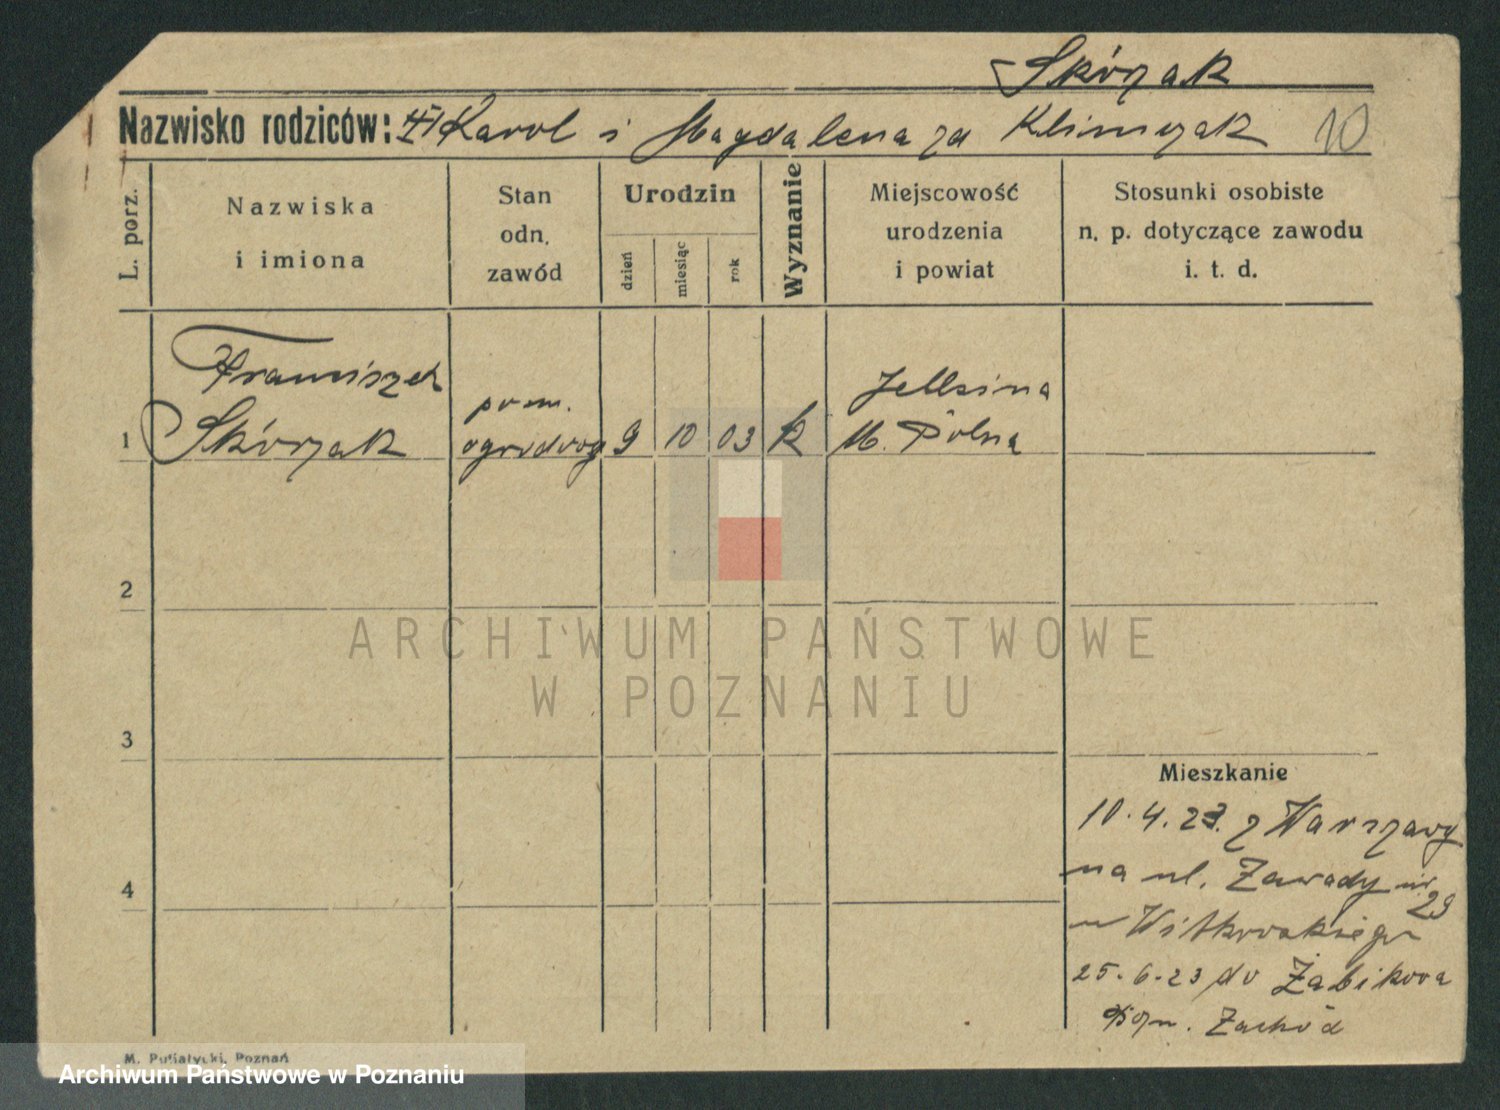 Skórzak
Nazwisko rodziców: Karol i Magdalena za Klimczak 10
L. porz.
Nazwiska
i imiona
Stan
odn.
zawód
Urodzin
dzień
miesiąc
rok
Wyznanie
Miejscowość
urodzenia
i powiat
Stosunki osobiste
n. p. dotyczące zawodu
i. t. d.
Franciszek
Skórzak
pom.
ogrodow
9 10 03 k
M. Polna
1
2
3
4
ARCHIWUM PAŃSTWOWE
W POZNANIU
Mieszkanie
10.4.23. z Warszawy
na ul. Zawady nr 29
u Witkowskiego
25.6.23 do Żabikowa
Pozn. Zachód
M. Putiatycki, Poznań
Archiwum Państwowe w Poznaniu